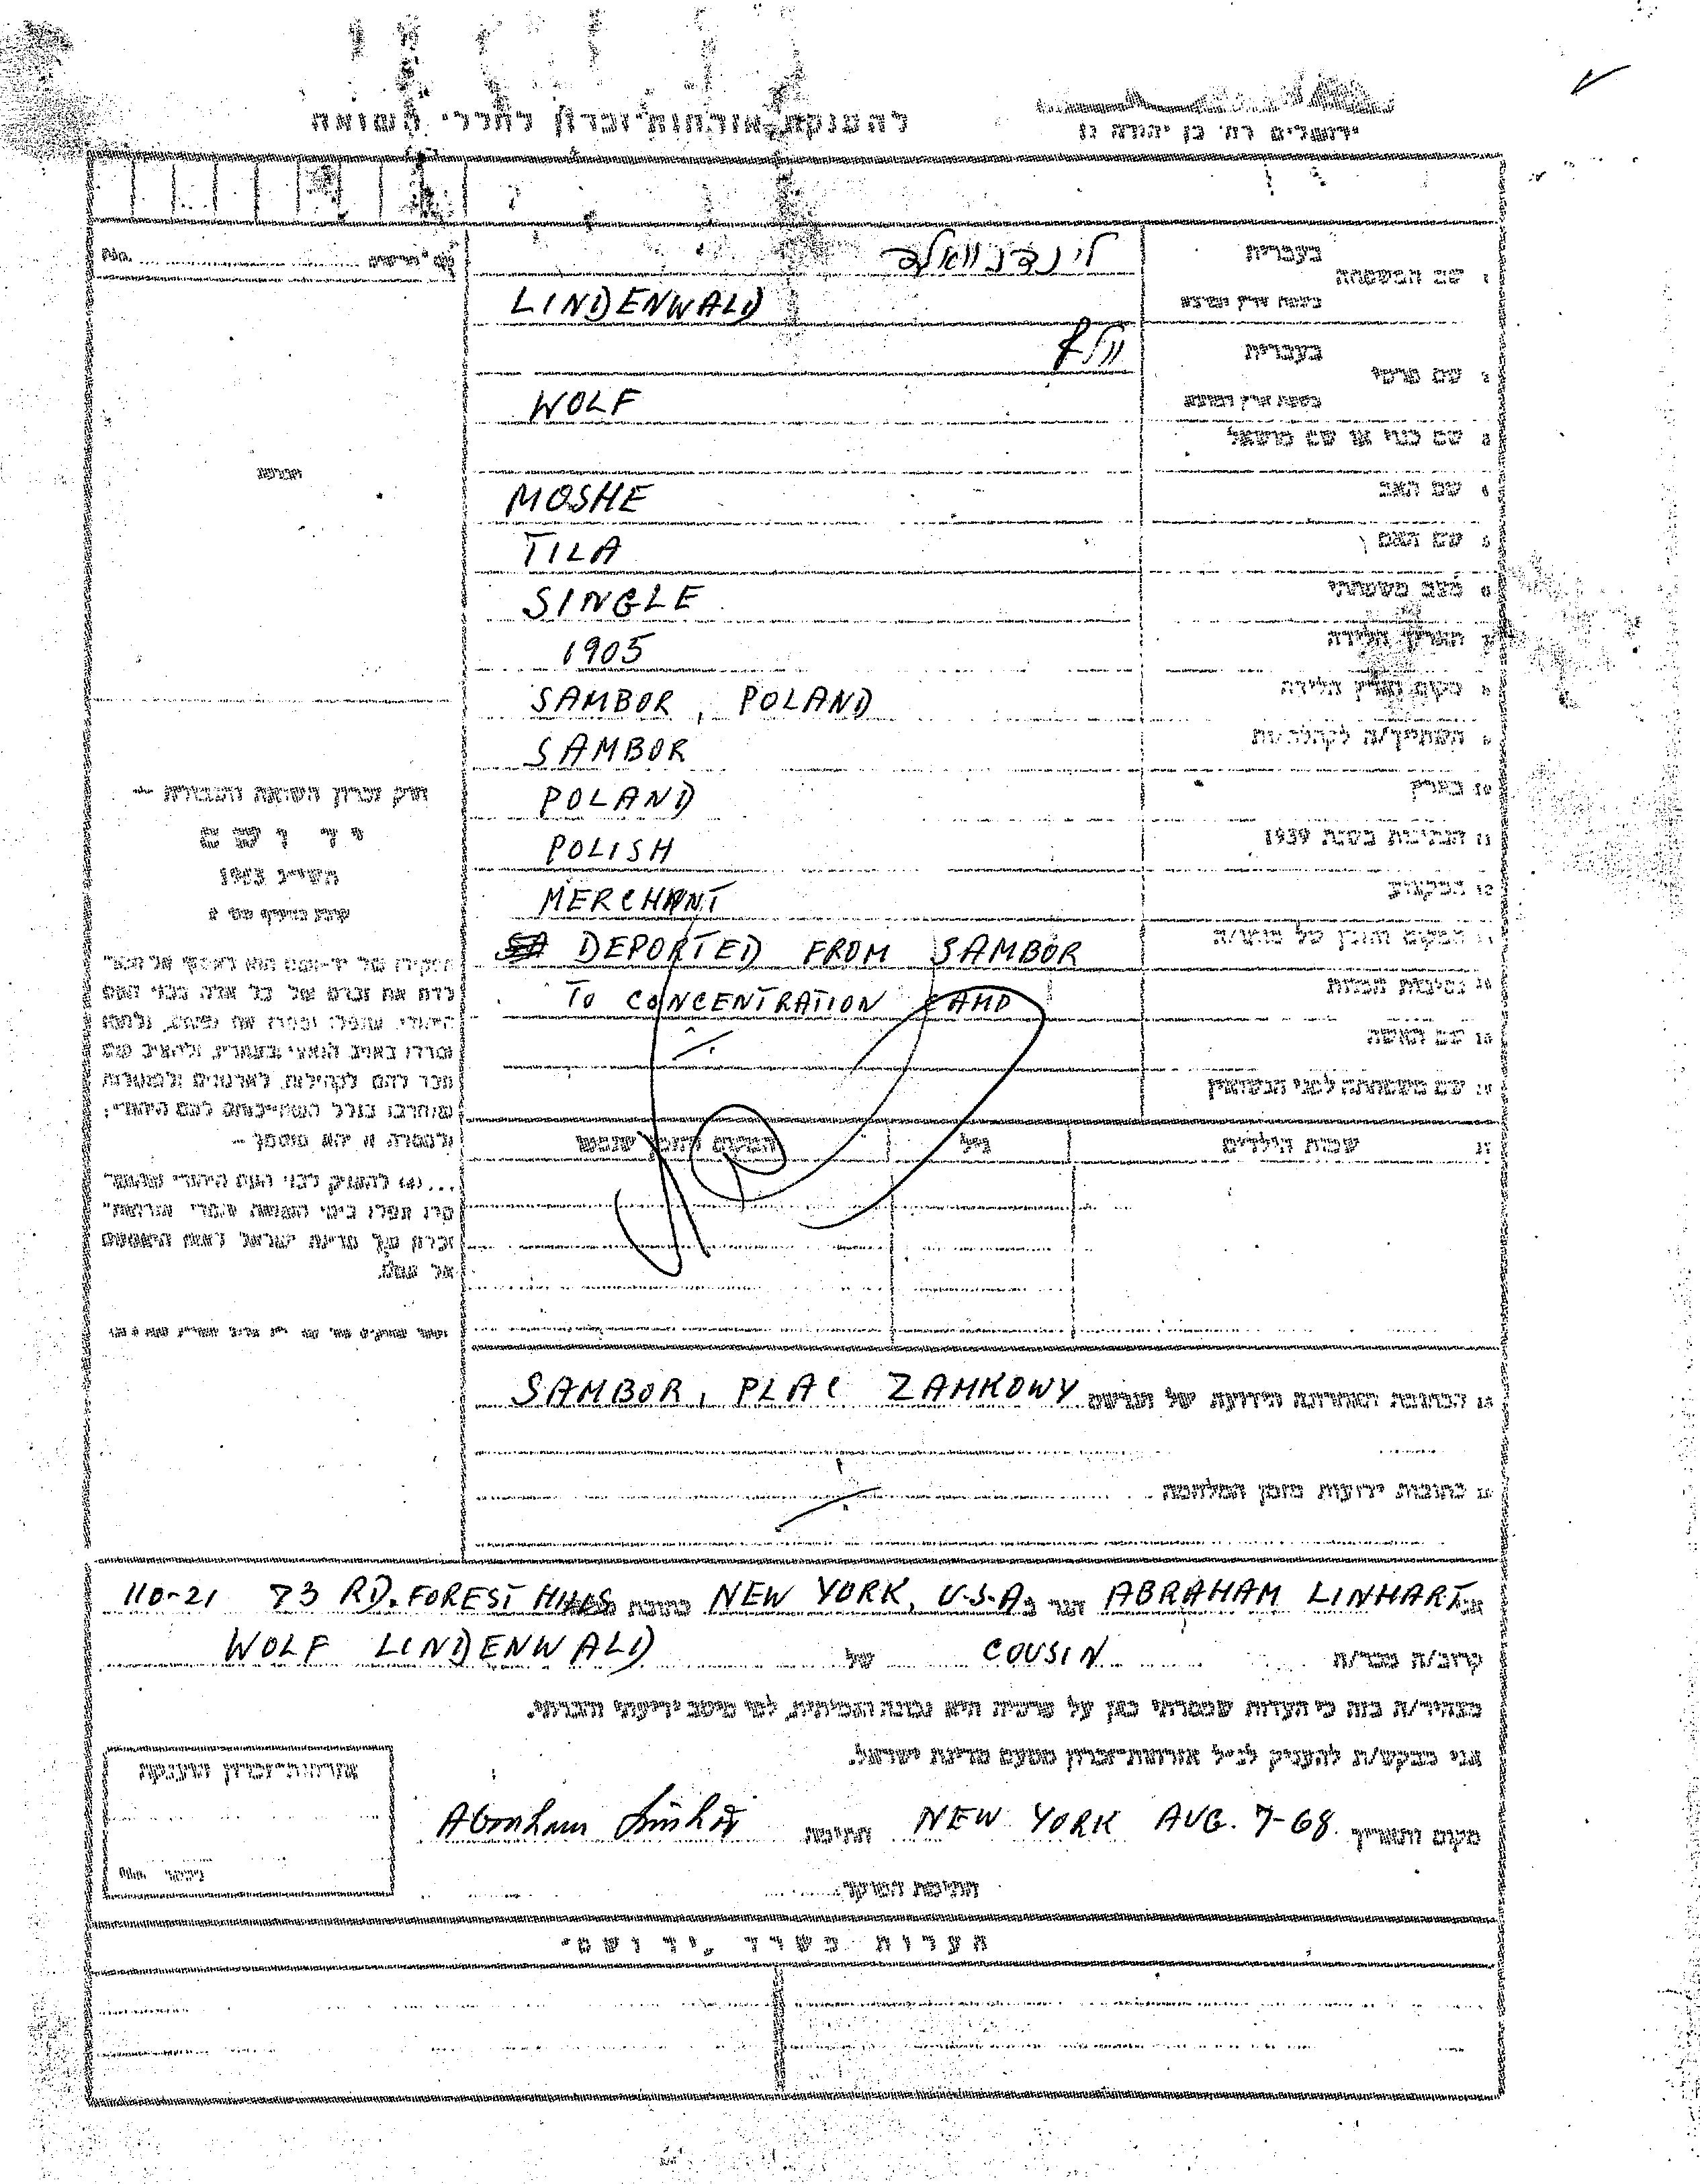 להענקת אזרחות־זכרון לחללי השואה
ירושלים רח׳ בן יהודה
No.
לינדנוואלד
בעברית
שם המשפחה
LINDENWALD
וולף
בעברית
שם פרטי
WOLF
שם כנוי או שם מושאל
MOSHE
שם האב
TILA
שם האם
SINGLE
מצב משפחתי
1905
תאריך הלידה
SAMBOR, POLAND
מקום וארץ הלידה
SAMBOR
השתייך/ה לקהלת/עת
POLAND
10 בארץ
POLISH
11 הנתינות בשנת 1939
MERCHANT
12 המקצוע
DEPORTED FROM SAMBOR
TO CONCENTRATION CAMP
נסיבות המות
שם האשה
שם משפחתה לפני הנשואין
שמות הילדים
גיל
המקום והזמן שנספו
חוק זכרון השואה והגבורה —
יד ושם
תשי״ג 1953
קובע בסעיף מס׳ 2
תפקידו של יד־ושם הוא לאסוף אל המו־
לדת את זכרם של כל אלה מבני העם
היהודי, שנפלו ומסרו את נפשם, נלחמו
ומרדו באויב הנאצי ובעוזריו, ולהציב שם
וזכר להם לקהילות, לארגונים ולמוסדות
שנחרבו בגלל השתייכותם לעם היהודי;
ולמטרה זו יהא מוסמך —
להעניק לבני העם היהודי שהוש־
מדו ונפלו בימי השואה והמרי אזרחות־
זכרון של מדינת ישראל לאות היאספם
אל עמם.
SAMBOR, PLAC ZAMKOWY
הכתובת האחרונה הידועה של הנרשם
כתובות ידועות מזמן המלחמה
אני ABRAHAM LINHART הגר ב NEW YORK, U.S.A. כתובת 110-21 73 RD. FOREST HILLS
קרוב/ה מכר/ה COUSIN של WOLF LINDENWALD
מצהיר/ה בזה כי העדות שמסרתי כאן על פרטיה היא נכונה ואמיתית, לפי מיטב ידיעתי והכרתי.
אני מבקש/ת להעניק לנ״ל אזרחות־זכרון מטעם מדינת ישראל.
אזרחות־זכרון הוענקה
מקום ותאריך NEW YORK AUG. 7-68 חתימה Abraham Linhart
No.
חתימת הפוקד
הערות משרד „יד ושם״